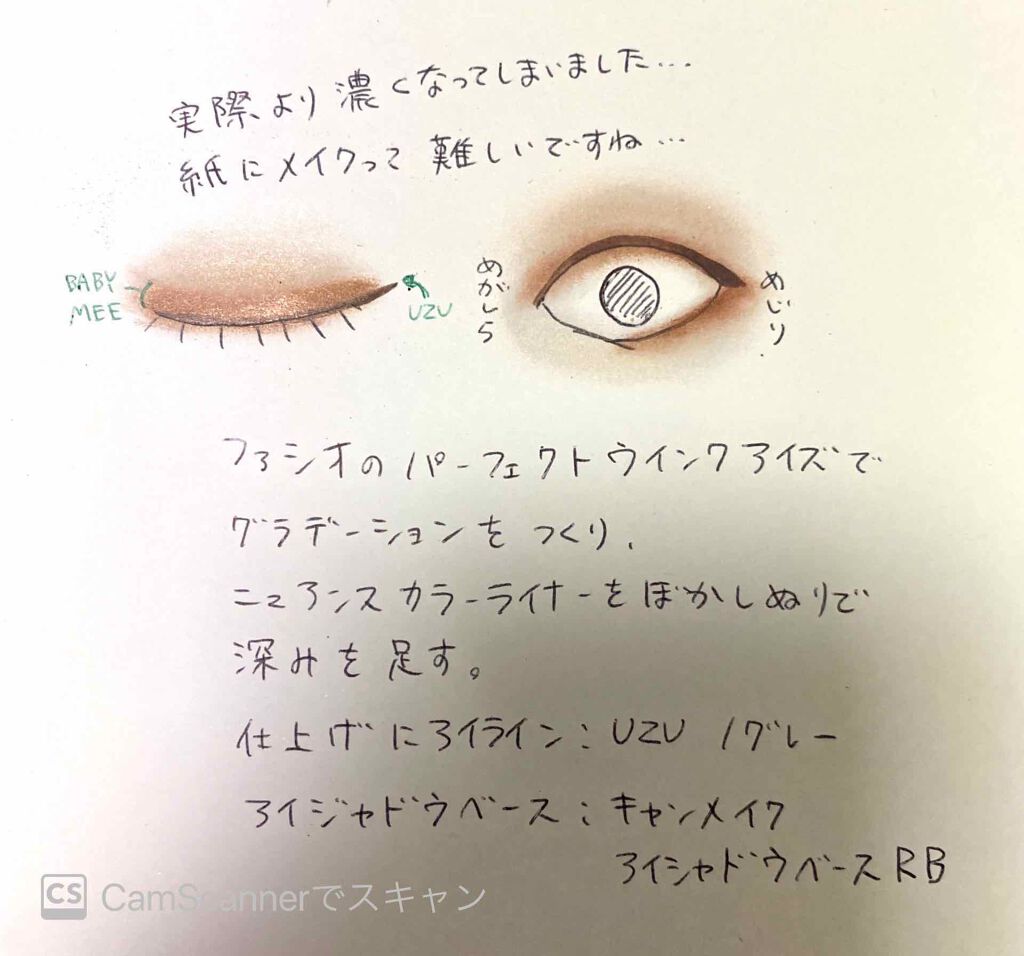 実際より濃くなってしまいました...
紙にメイクって難しいですね...
BABY
MEE
UZU
めがしら
めじり
ファシオのパーフェクトウインクアイズで
グラデーションをつくり、
ニュアンスカラーライナーをぼかしぬりで
深みを足す。
仕上げにアイライン:UZU /グレー
アイジャドウベース:キャンメイク
アイシャドウベースRB
CS CamScannerでスキャン